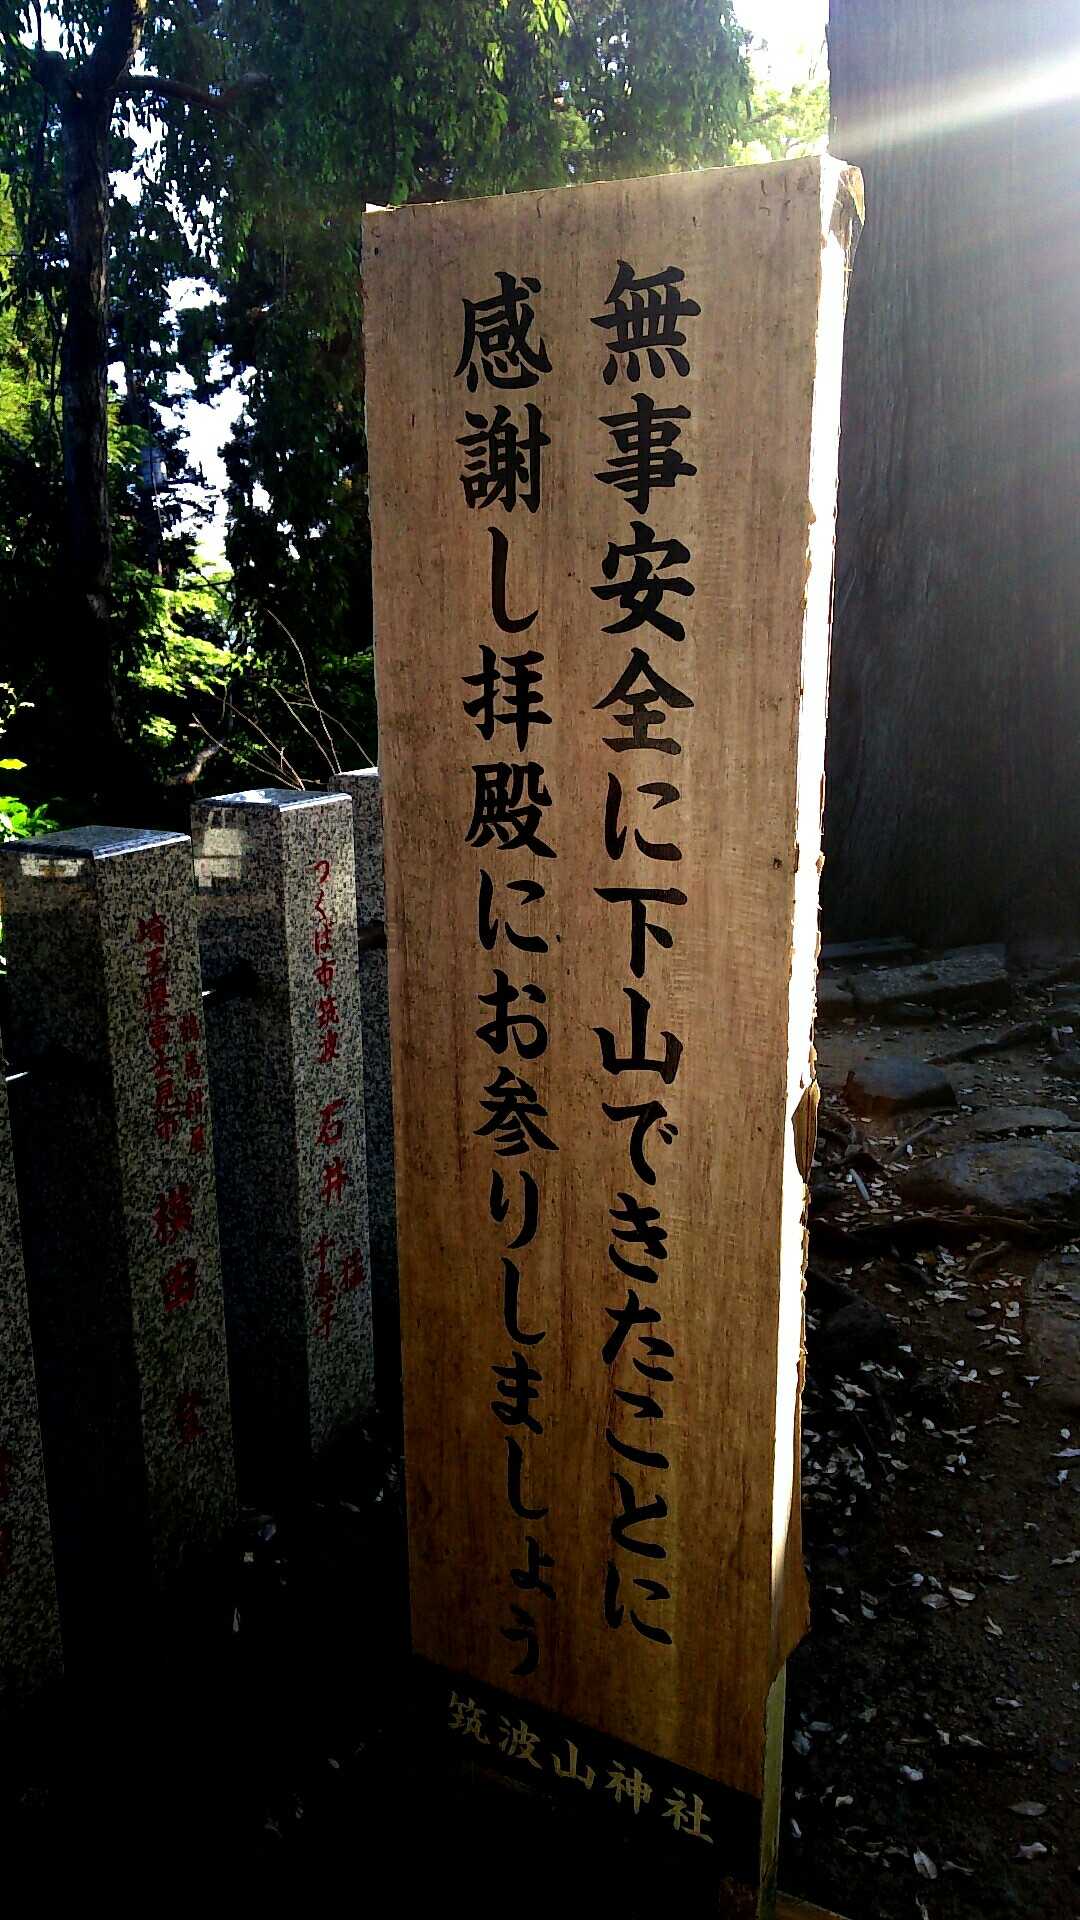 無事安全に下山できたことに
感謝し拝殿にお参りしましょう
筑波山神社
つくば市筑波
石井
埼玉県富士見市
横田